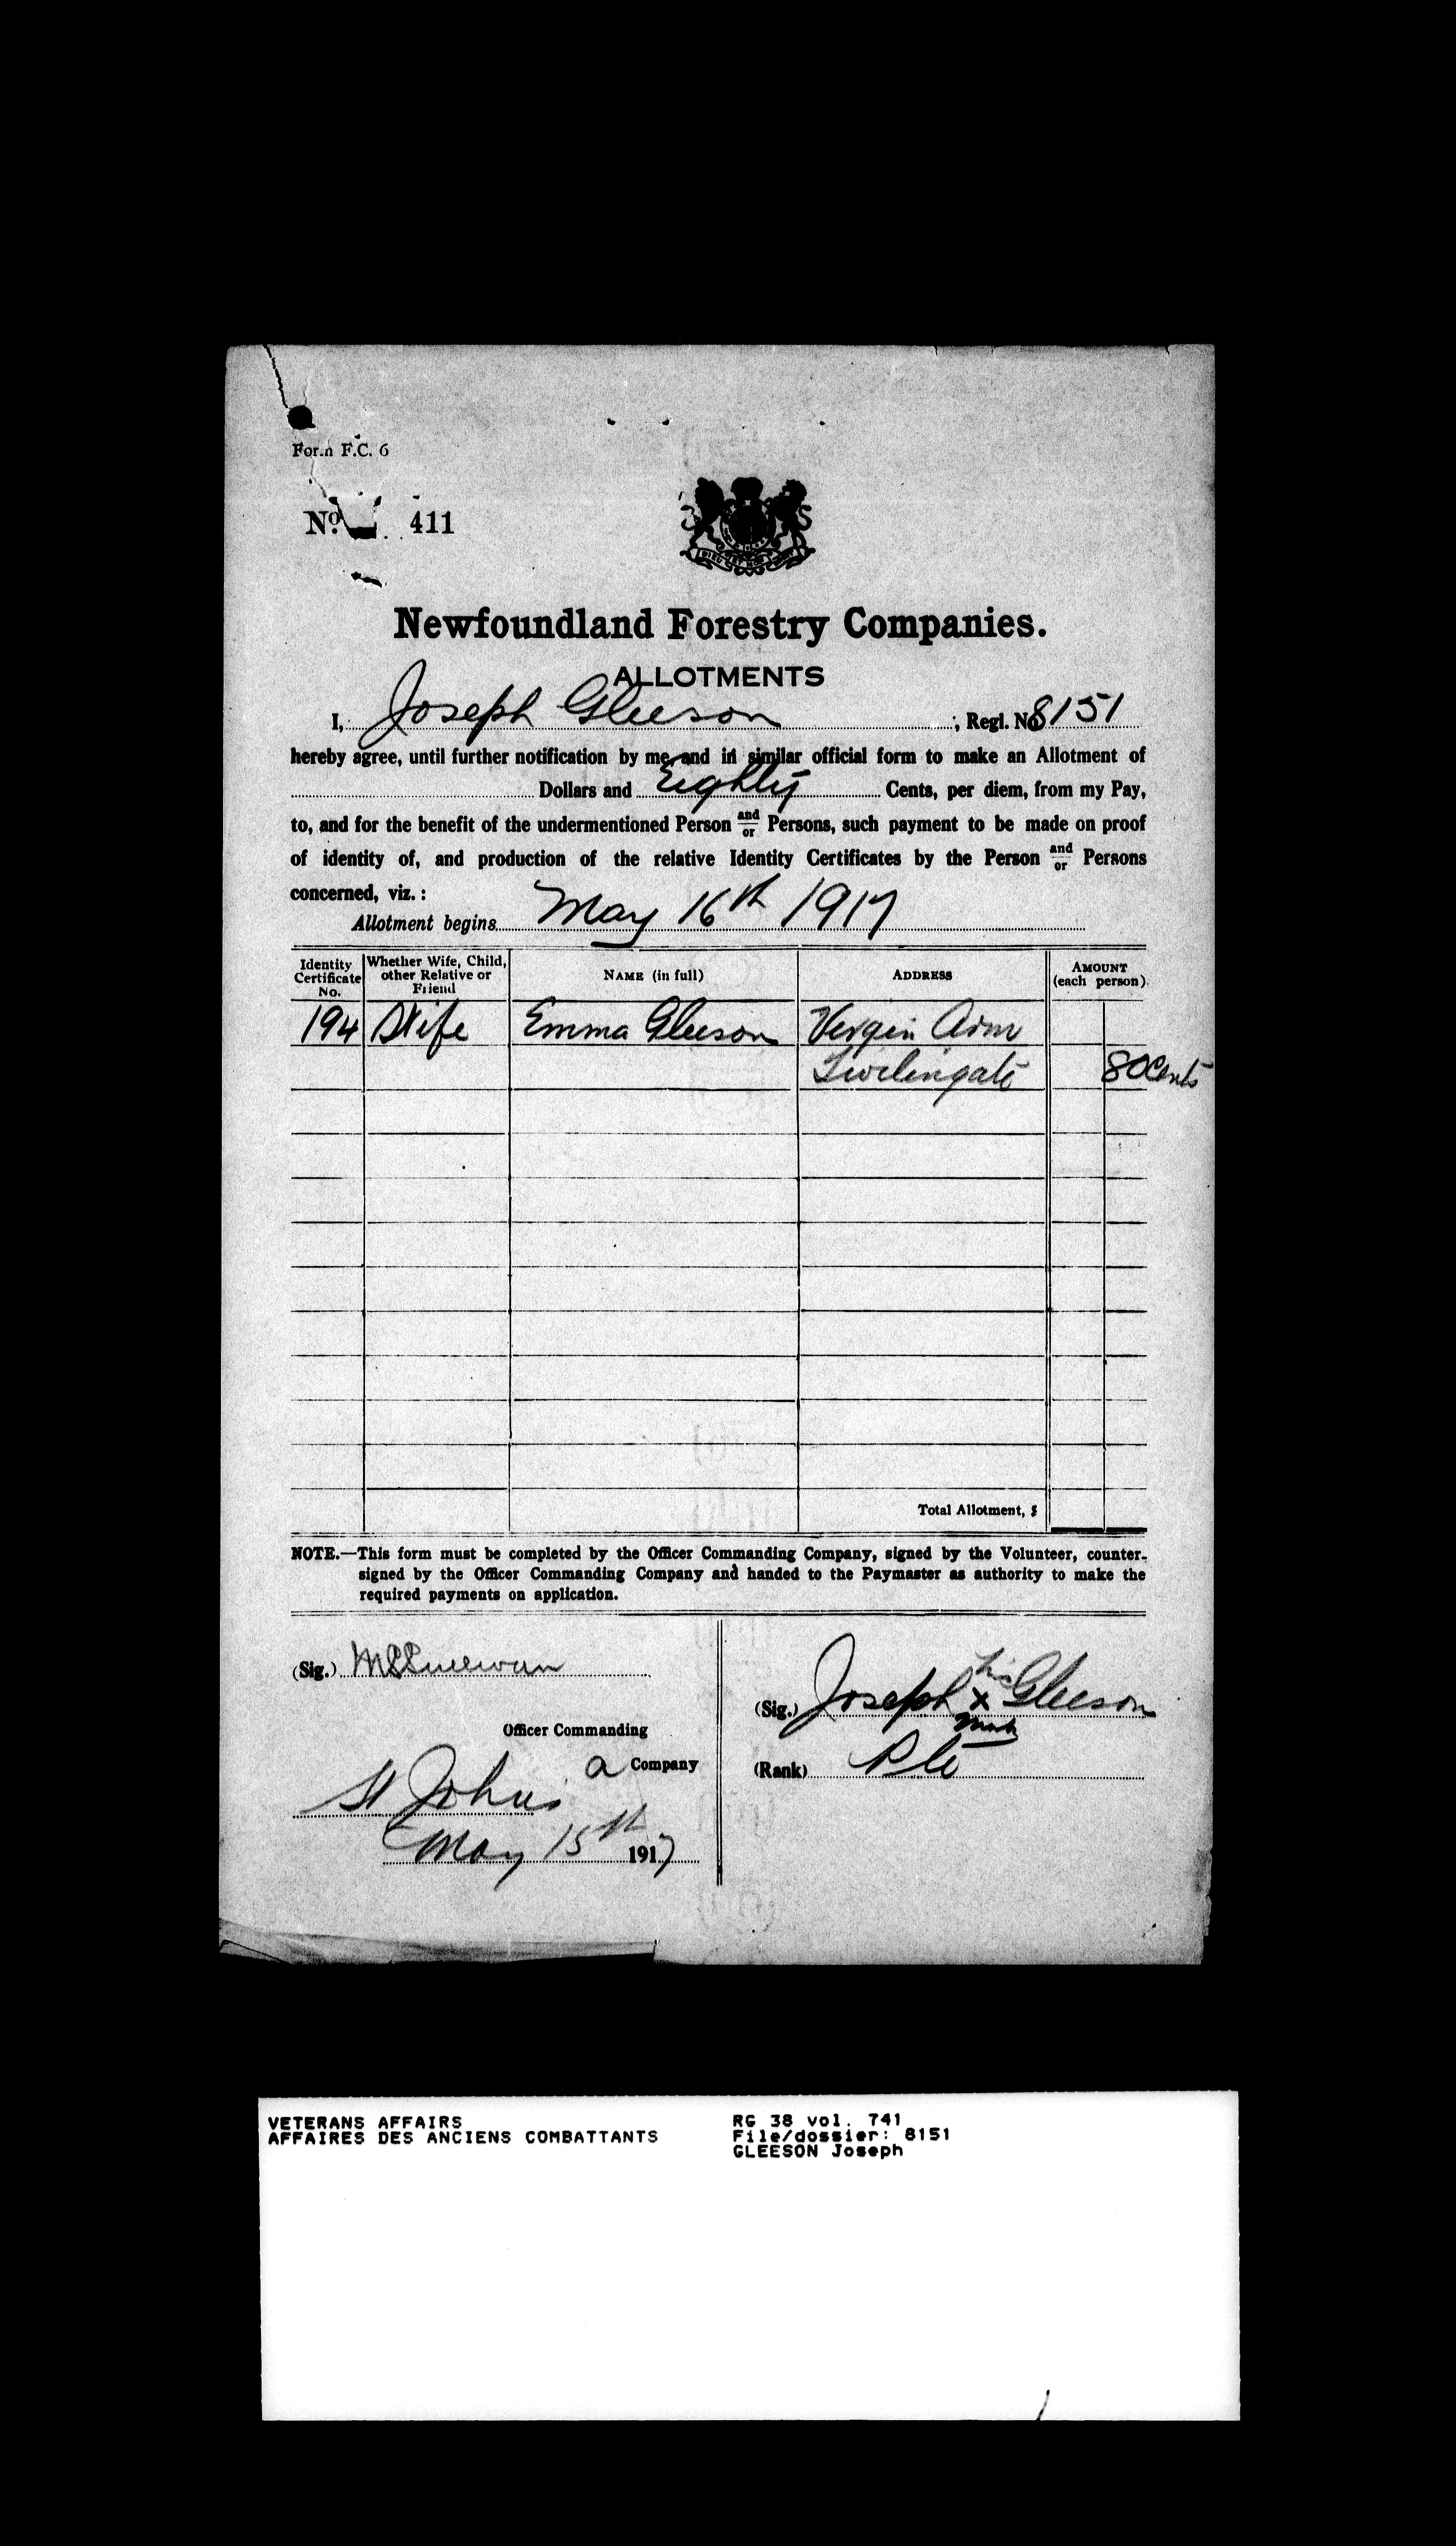 Form F.C. 6
No. 411
Newfoundland Forestry Companies.
ALLOTMENTS
I, Joseph Gleeson ; Regl. No 8151
hereby agree, until further notification by me, and in similar official form to make an Allotment of
Dollars and Eighty Cents, per diem, from my Pay,
to, and for the benefit of the undermentioned Person and/or Persons, such payment to be made on proof
of identity of, and production of the relative Identity Certificates by the Person and/or Persons
concerned, viz. :
Allotment begins May 16th 1917
Identity Certificate No.
Whether Wife, Child, other Relative or Friend
NAME (in full)
ADDRESS
AMOUNT (each person)
194 Wife Emma Gleeson Virgin Arm
Twilingate 80 Cents
Total Allotment, $
NOTE.—This form must be completed by the Officer Commanding Company, signed by the Volunteer, counter-
signed by the Officer Commanding Company and handed to the Paymaster as authority to make the
required payments on application.
(Sig.)
Officer Commanding
a Company
St Johns
May 15th 1917
(Sig.) Joseph his x mark Gleeson
(Rank) Pte
VETERANS AFFAIRS
AFFAIRES DES ANCIENS COMBATTANTS
RG 38 vol. 741
File/dossier: 8151
GLEESON Joseph